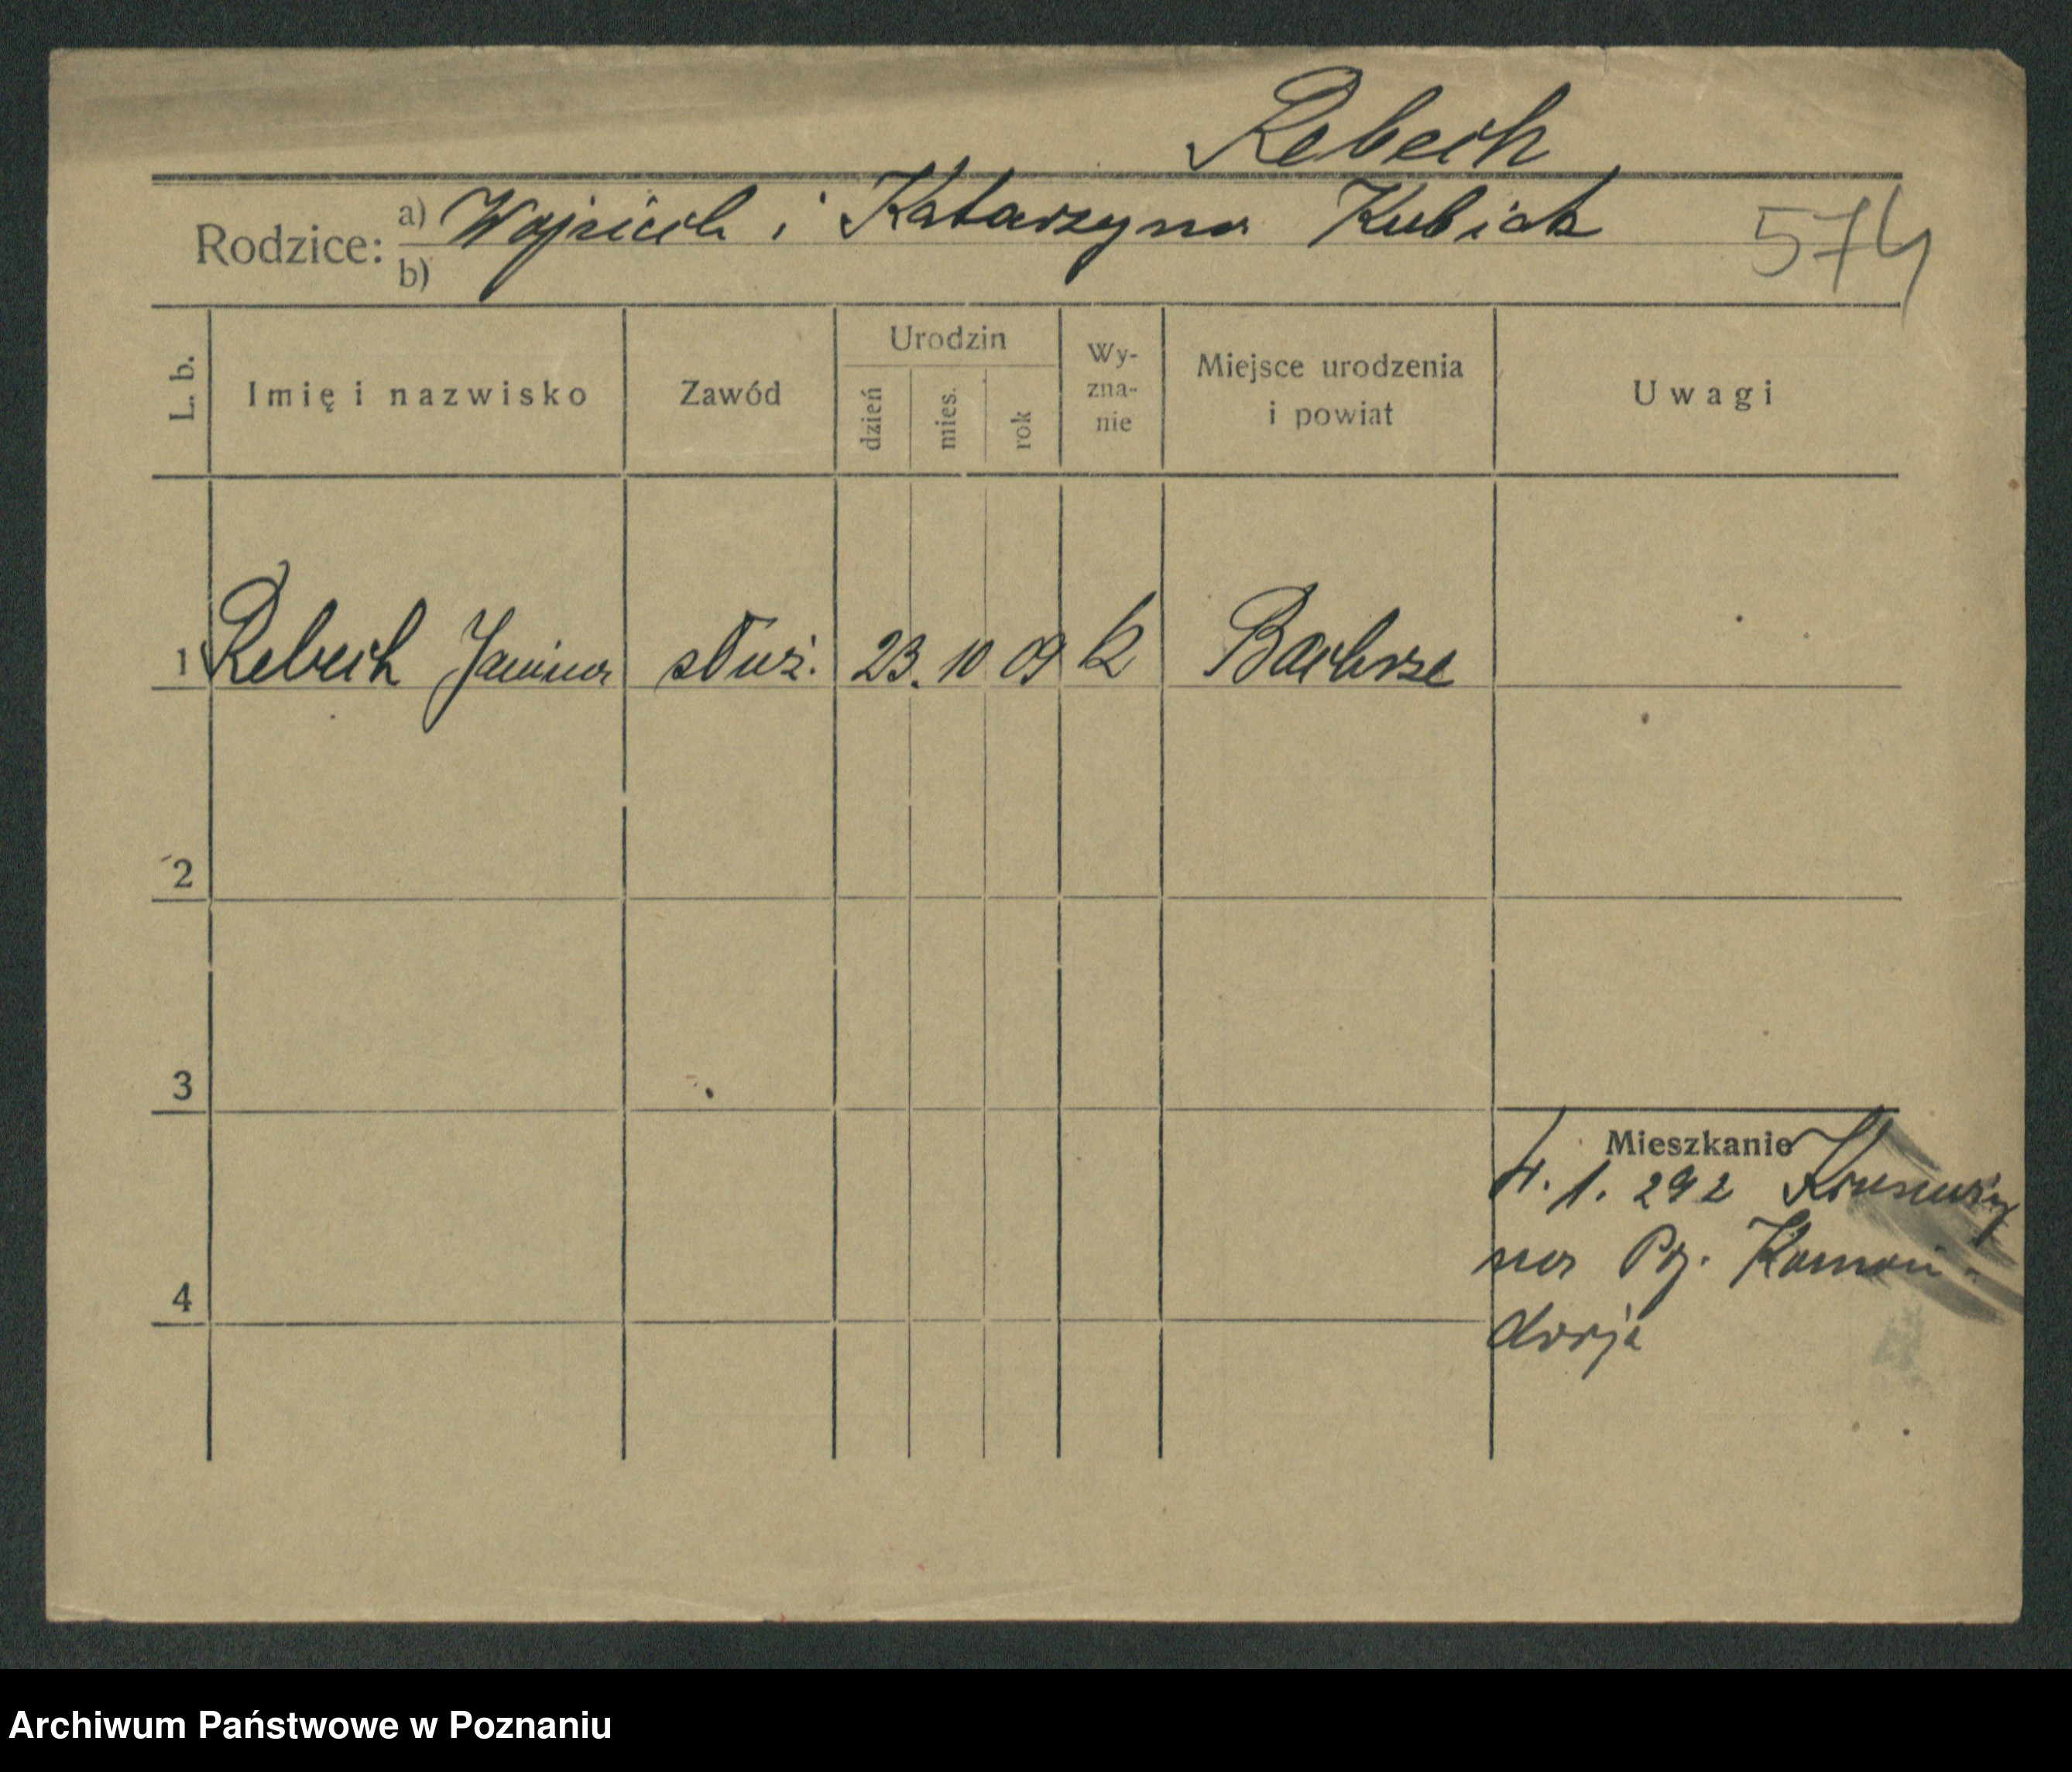 Rebech
Rodzice: a) Wojciech i Katarzyna Kubiak
b)
574
L. b.
Imię i nazwisko
Zawód
Urodzin
dzień
mies.
rok
Wy-
zna-
nie
Miejsce urodzenia
i powiat
Uwagi
1 Rebech Janina służ. 23. 10 09 k
2
3
4
Mieszkanie
4. 1. 292
na Pg. Koman-
dorja
Archiwum Państwowe w Poznaniu